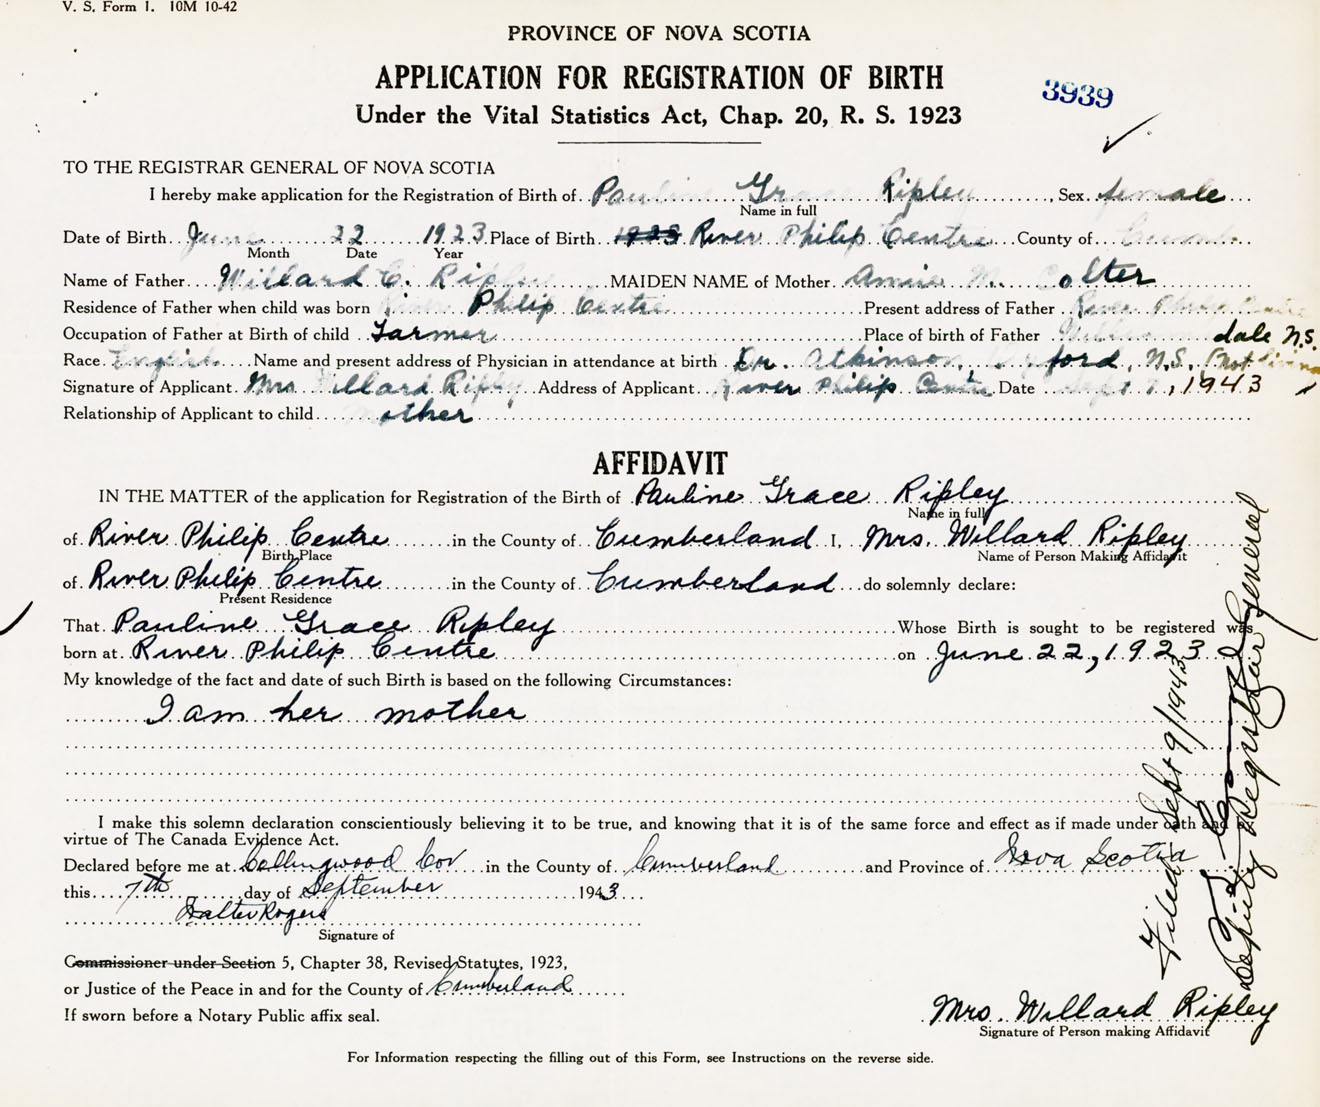 V. S. Form 1. 10M 10-42
PROVINCE OF NOVA SCOTIA
APPLICATION FOR REGISTRATION OF BIRTH
3939
Under the Vital Statistics Act, Chap. 20, R. S. 1923
TO THE REGISTRAR GENERAL OF NOVA SCOTIA
I hereby make application for the Registration of Birth of Pauline Grace Ripley, Sex female
Name in full
Date of Birth June 22 1923 Place of Birth 1923 River Philip Centre County of
Month Date Year
Name of Father Willard C. Ripley MAIDEN NAME of Mother Annie M. Colter
Residence of Father when child was born River Philip Centre Present address of Father River Philip Centre
Occupation of Father at Birth of child Farmer Place of birth of Father dale N.S.
Race English Name and present address of Physician in attendance at birth Dr. Atkinson, Oxford, N.S. (Not living
Signature of Applicant Mrs Willard Ripley Address of Applicant River Philip Centre Date Sept 7, 1943
Relationship of Applicant to child Mother
AFFIDAVIT
IN THE MATTER of the application for Registration of the Birth of Pauline Grace Ripley
Name in full
of River Philip Centre in the County of Cumberland I, Mrs. Willard Ripley
Birth Place Name of Person Making Affidavit
of River Philip Centre in the County of Cumberland do solemnly declare:
Present Residence
That Pauline Grace Ripley Whose Birth is sought to be registered was
born at River Philip Centre on June 22, 1923
My knowledge of the fact and date of such Birth is based on the following Circumstances:
I am her mother
I make this solemn declaration conscientiously believing it to be true, and knowing that it is of the same force and effect as if made under oath and by
virtue of The Canada Evidence Act.
Declared before me at Collingwood Cor in the County of Cumberland and Province of Nova Scotia
this 7th day of September 1943
Walter Rogers
Signature of
Commissioner under Section 5, Chapter 38, Revised Statutes, 1923,
or Justice of the Peace in and for the County of Cumberland
If sworn before a Notary Public affix seal.
Mrs. Willard Ripley
Signature of Person making Affidavit
For Information respecting the filling out of this Form, see Instructions on the reverse side.
Filed Sept 9/1943
Deputy Registrar General